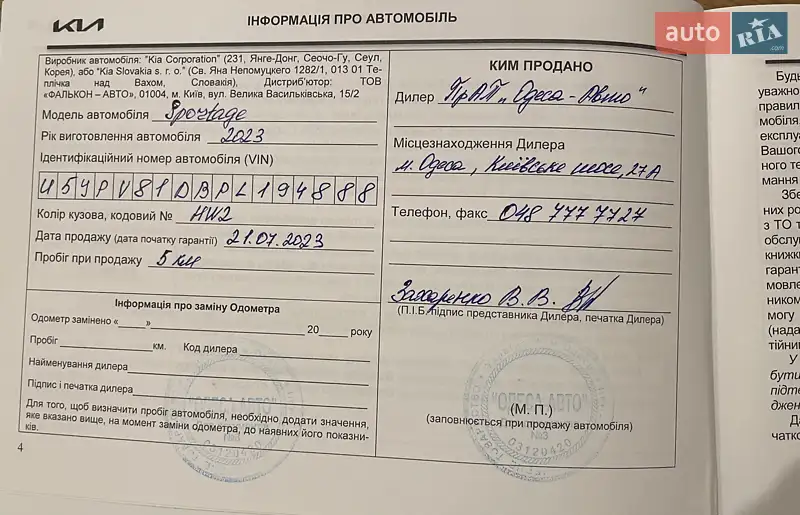 KIA
ІНФОРМАЦІЯ ПРО АВТОМОБІЛЬ
auto RIA .com
Виробник автомобіля: "Kia Corporation" (231, Янге-Донг, Сеочо-Гу, Сеул,
Корея), або "Kia Slovakia s. r. o." (Св. Яна Непомуцкего 1282/1, 013 01 Те-
плічка над Вахом, Словакія), Дистриб'ютор: ТОВ
«ФАЛЬКОН – АВТО», 01004, м. Київ, вул. Велика Васильківська, 15/2
Модель автомобіля Sportage
Рік виготовлення автомобіля 2023
Ідентифікаційний номер автомобіля (VIN)
U5YPV81DBPL194888
Колір кузова, кодовий № HW2
Дата продажу (дата початку гарантії) 21.07.2023
Пробіг при продажу 5 км
Інформація про заміну Одометра
Одометр замінено «____» 20____ року
Пробіг ____ км. Код дилера
Найменування дилера
Підпис і печатка дилера
Для того, щоб визначити пробіг автомобіля, необхідно додати значення,
яке вказано вище, на момент заміни одометра, до наявних його показни-
ків.
4
КИМ ПРОДАНО
Дилер ПрАТ "Одеса-Авто"
Місцезнаходження Дилера
м. Одеса, Київське шосе, 27А
Телефон, факс 048 777 7727
Захаренко В. В.
(П.І.Б. підпис представника Дилера, печатка Дилера)
(М. П.)
(заповнюється при продажу автомобіля)
"ОДЕСА АВТО"
№3
03120420
"ОДЕСА АВТО"
№3
03120420
Будь
уважно
правил
мобіля
експлуа
Вашого
ного те
мання
Збе
них ро
з ТО т
обслу
книжк
гарант
мовле
ником
могу
(нада
тійни
У
бути
підте
джен
Да
чатко